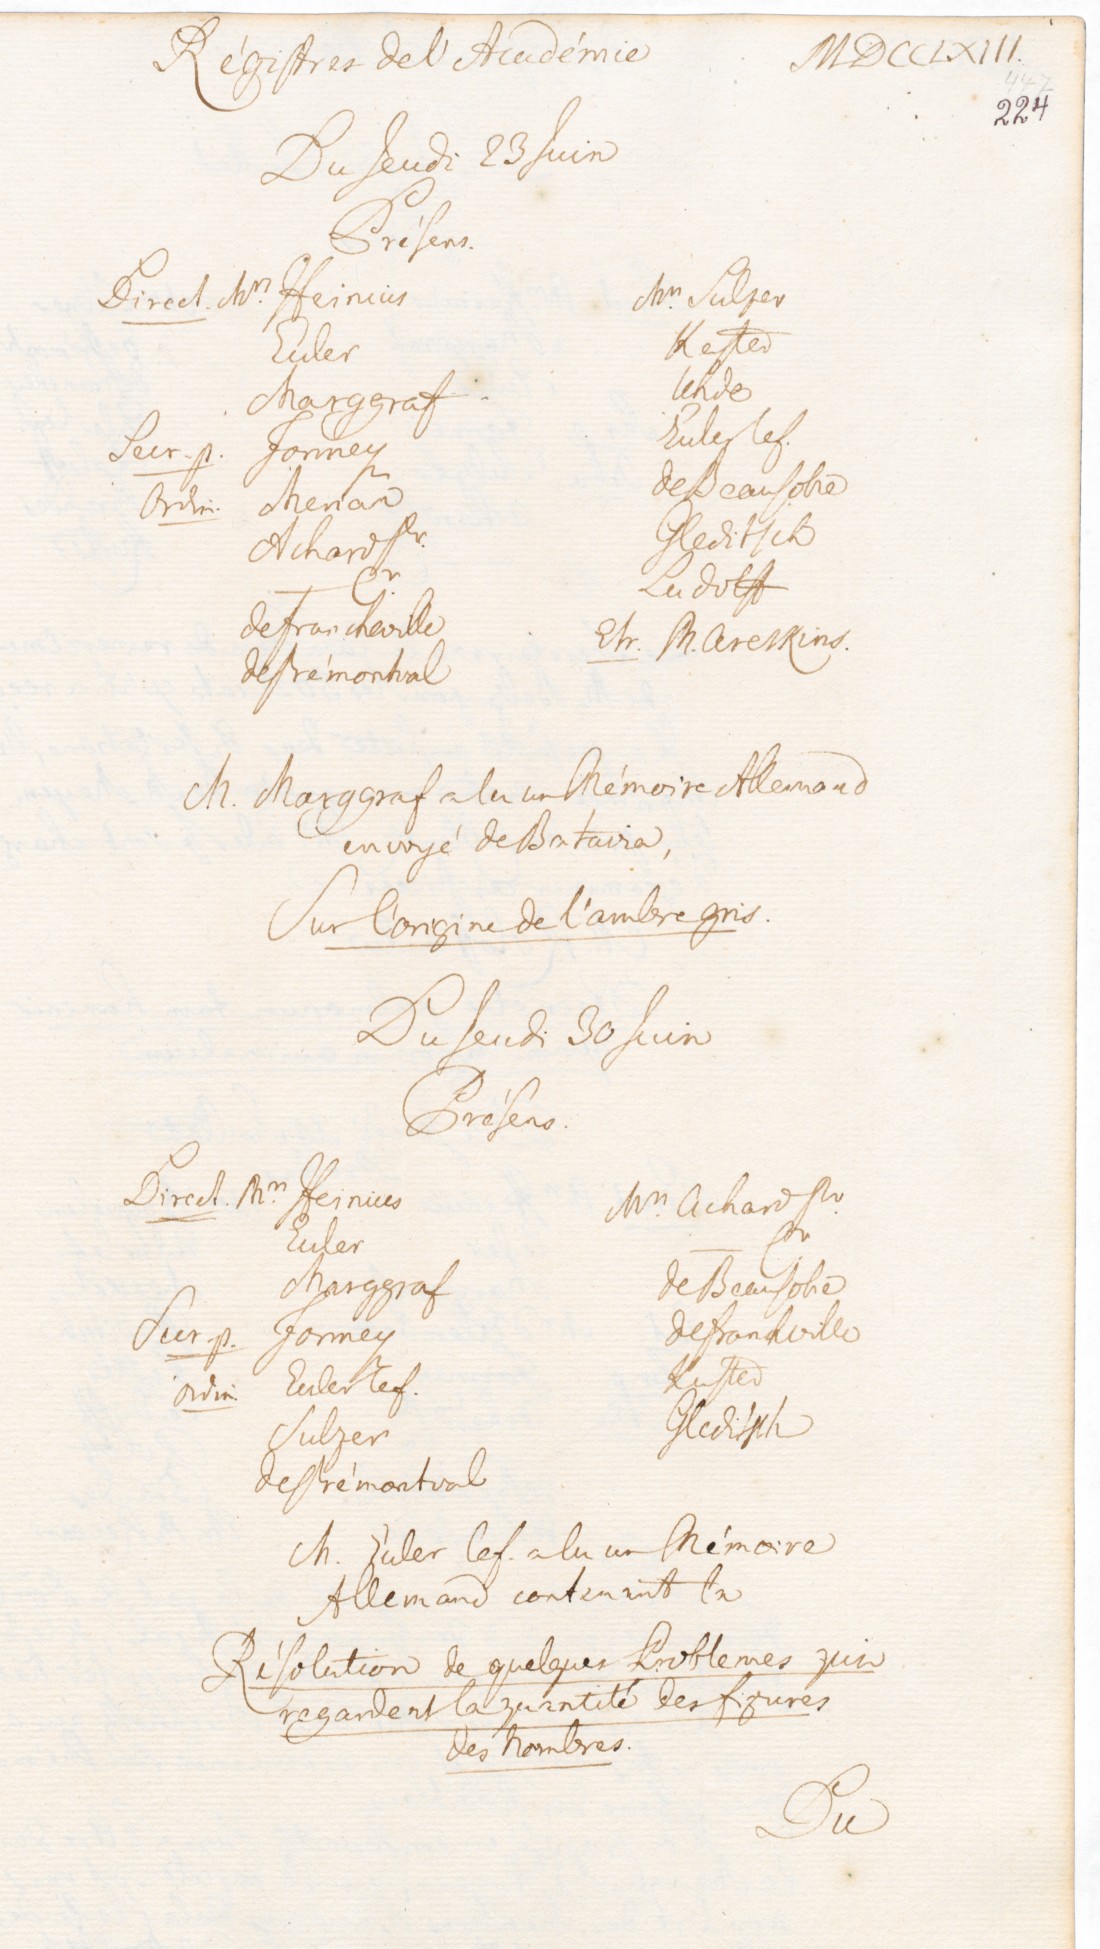 Régistres de l'Académie
MDCCLXIII.
447
224
Du Jeudi 23 Juin
Présens.
Direct. Mrs. Heinius
Euler
Marggraf
Secr. p. Formey
Ordin. Merian
Achard Sr.
— Pr
de Francheville
de Prémontval
Mrs. Sulzer
Kuster
Uhde
Euler le f.
de Beausobre
Gleditsch
Ludolff
Etr. M. Areskins.
M. Marggraf a lu un Mémoire Allemand
envoyé de Batavia,
Sur l'origine de l'ambre gris.
Du Jeudi 30 Juin
Présens.
Direct. Mrs. Heinius
Euler
Marggraf
Secr. p. Formey
Ordin. Euler le f.
Sulzer
de Prémontval
Mrs. Achard Sr.
— Pr
de Beausobre
de Francheville
Kuster
Gleditsch
M. Euler le f. a lu un Mémoire
Allemand contenant la
Résolution de quelques Problemes qui
regardent la quantité des figures
des nombres.
Du